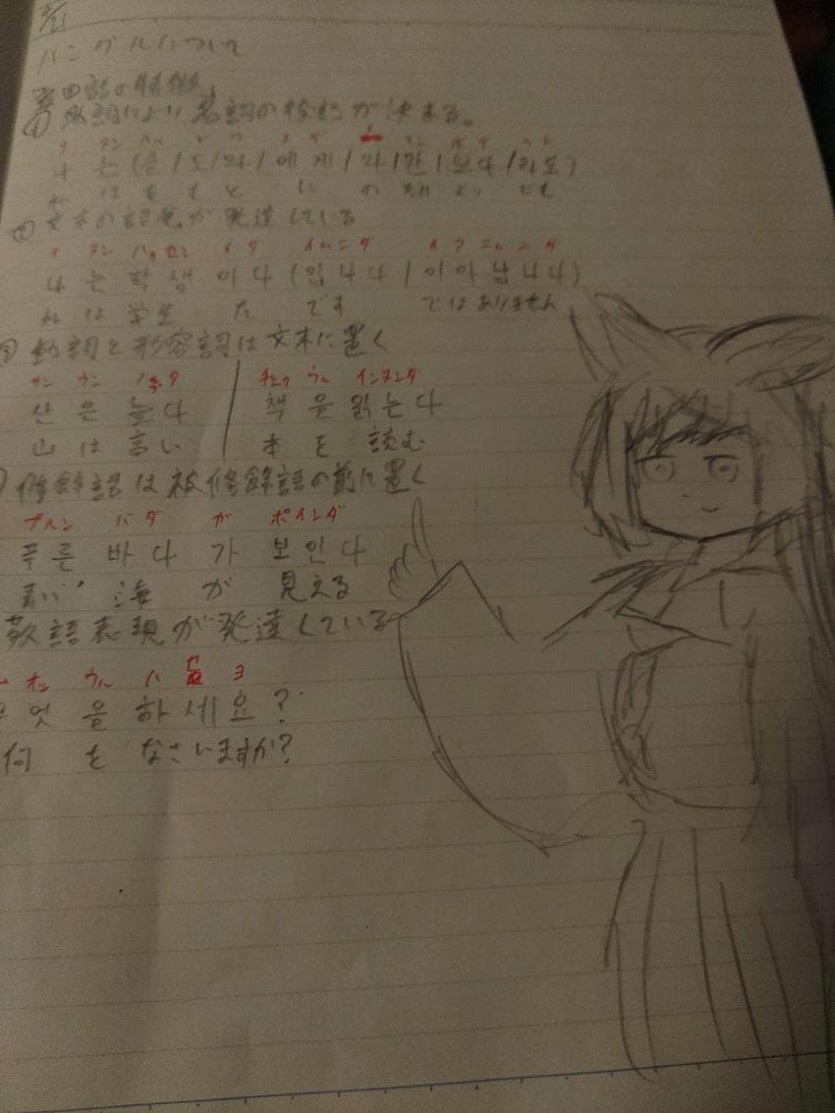 ハングルについて
韓国語の特徴
助詞により名詞の役割が決まる。
ヌン
는 (을 / 도 / 와 / 에게 / 의 / 만 / 보다 / 라도)
は を も と に の だけ より でも
② 文末の語尾が発達している
イ ダ イムニダ
나 는 学 生 이 다 (입니다 / 이 아 닙니다)
私 は 学生 だ です ではありません
動詞と形容詞は文末に置く
サン ウン チェク ウル インヌンダ
산 은 높다 책 을 읽는다
山 は 高い 本 を 読む
修飾語は被修飾語の前に置く
プルン バダ ガ ボインダ
푸른 바다 가 보인다
青い 海 が 見える
敬語表現が発達している
オッ ウル ハ セ ヨ
엇 을 하세요?
何 を なさいますか?